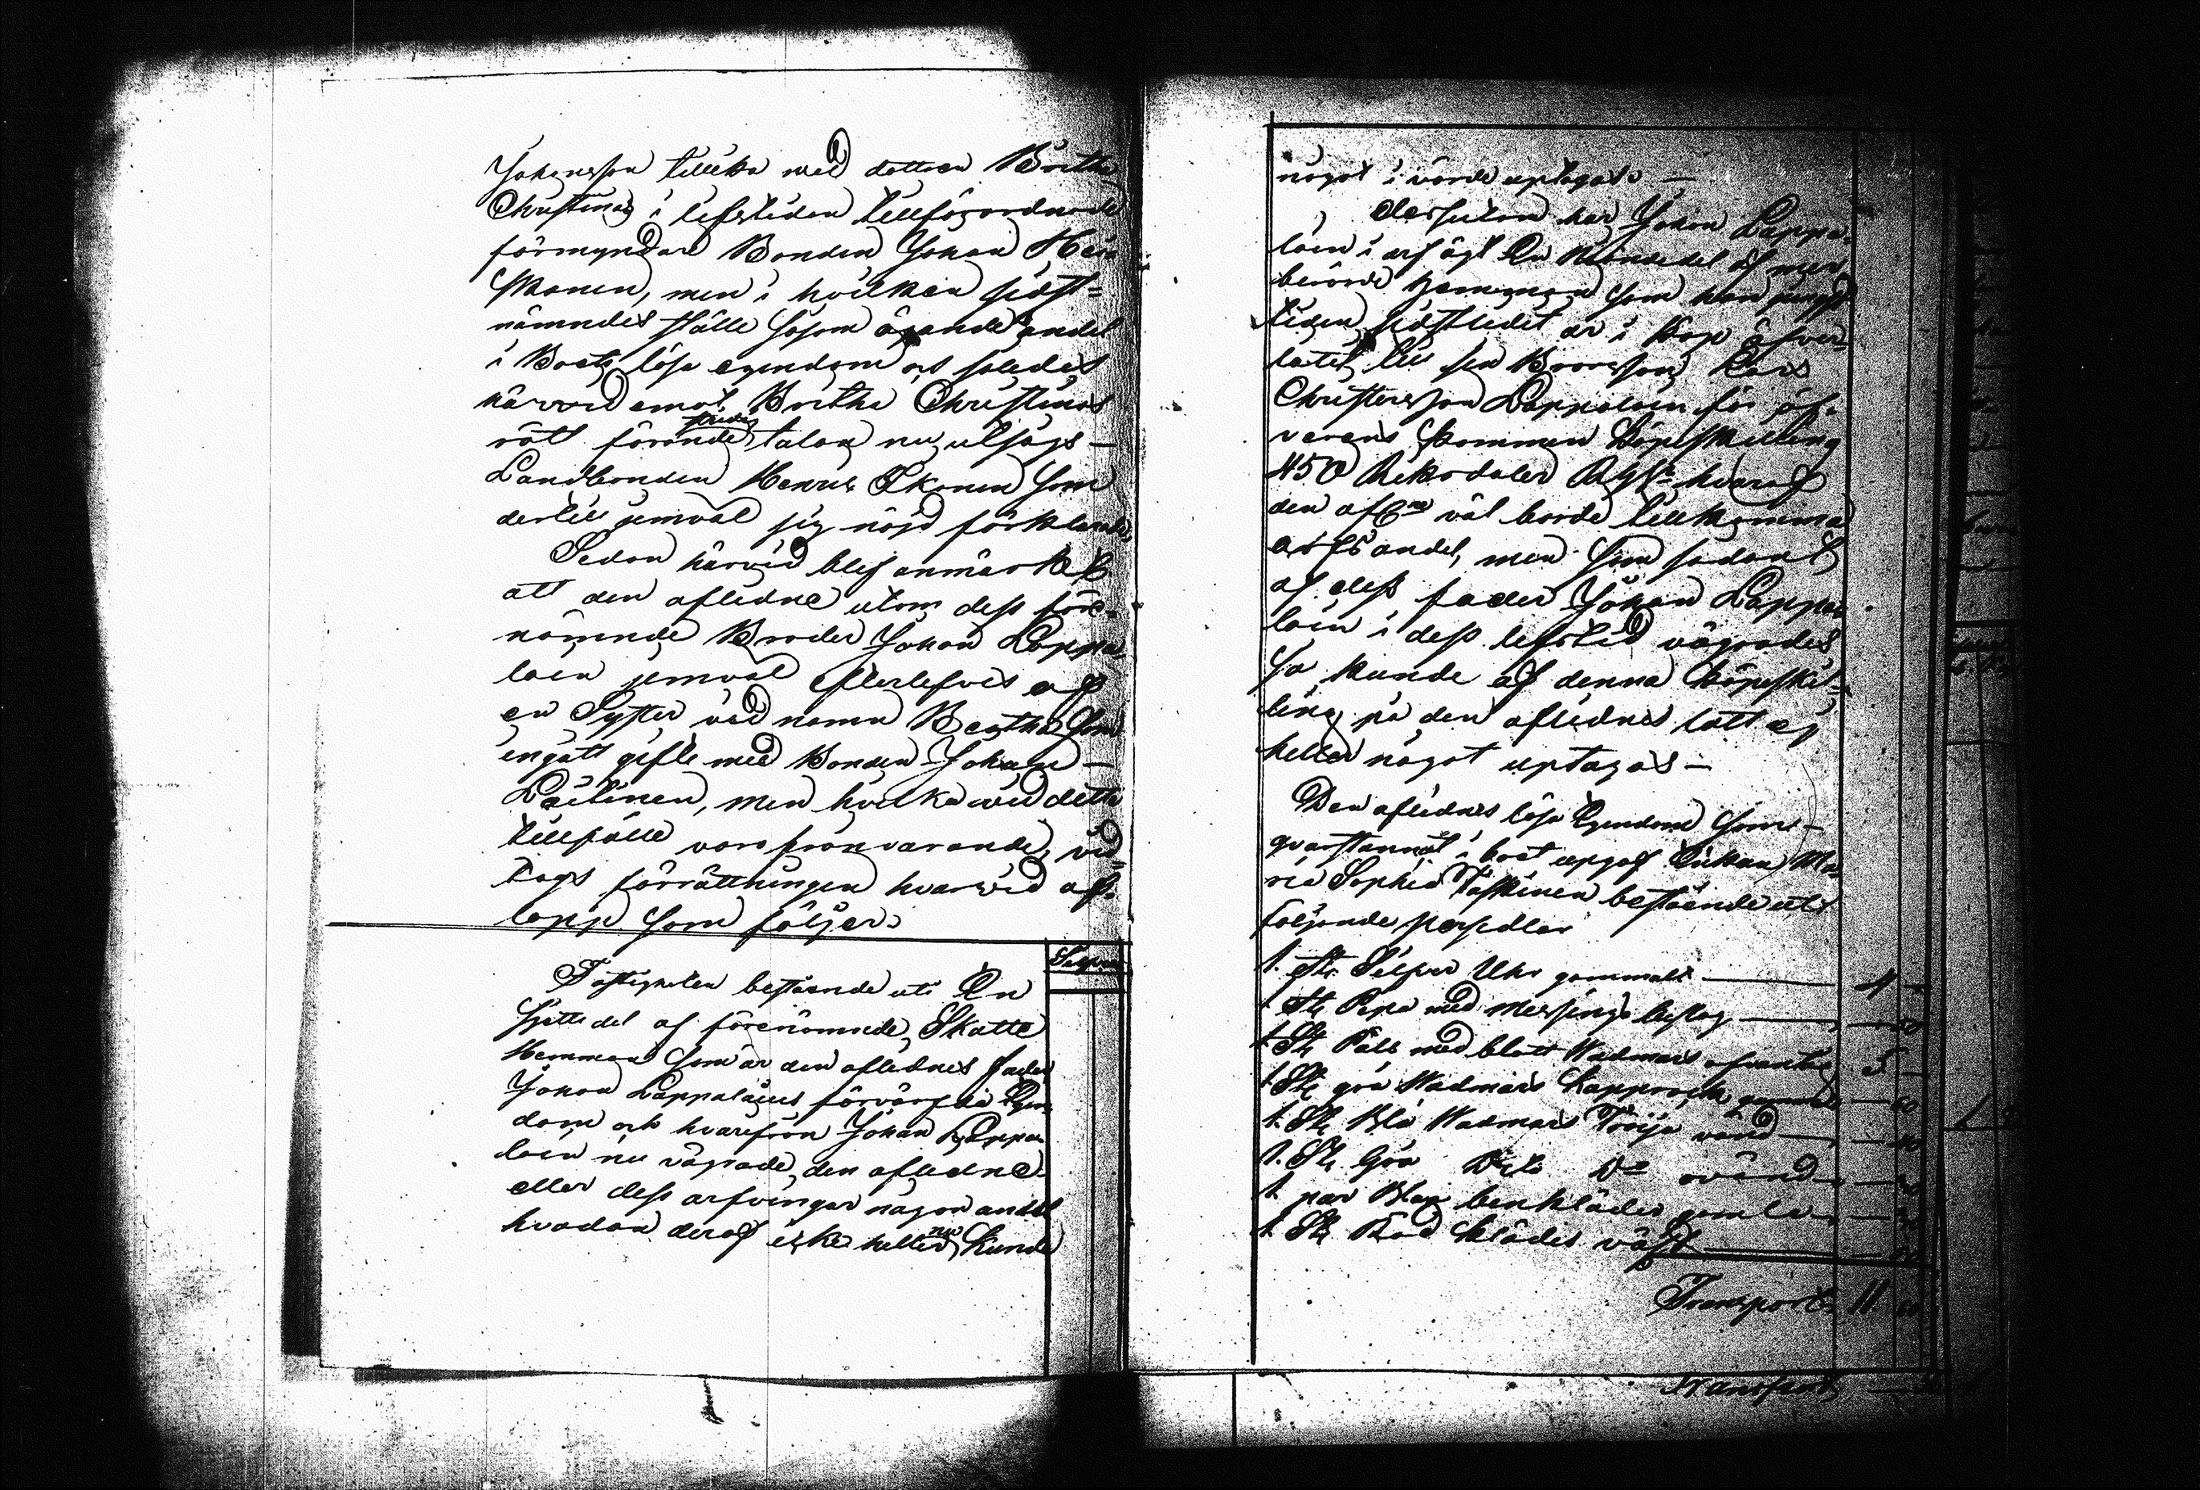 Johansson tillika med dottren Britha
Christinas i lifstiden tillförordnade
förmyndare Bonden Johan Hei-
skanen, men i hvilken sidst-
nämndes ställe såsom ägande andel
i Boets lösa egendom och således
härvid emot Britha Christinas
rätt förande talan nu utsågs —
Landbonden Henric Ikonen som
dertill jemväl sig nöjd förklarade,
Sedan härvid blef anmärkt
att den aflidne utom dess före-
nämnde Broder Johan Lappa-
lain jemväl efterlefves af
en Syster vid namn Beatha som
ingått gifte med Bonden Johan —
Laitinen, men hvilka vid detta
tillfälle voro frånvarande, vid-
togs förrättningen hvarvid af-
lopp som följer.
Silfver
Fastigheten bestående uti En
Sjette del af förenämnde Skatte
Hemman som är den aflidnes fader
Johan Lappalains förvärfda Egen
dom och hvarifrån Johan Lappa
lain nu vägrade den aflidne
eller dess arfvingar någon andel
hvadan deraf icke heller nu kunde
något i värde uptagas —
Dessutom har Johan Lappa-
lain i arf ägt En del af men
berörde hemman som han
tiden sidstledit år i köp öfver-
låtit till sin Brorsson Lars
Christersson Lappalain för öf-
verens kommen Köpeskilling
450 Riksdaler Rgs hvaraf
den afl:ne väl borde tillkomma
arfs andel, men som sådant
af dess fader Johan Lappa
lain i dess lifstid vägrades
så kunde af denna köpeskil-
ling på den aflidnes lått ej
heller något uptagas —
Den aflidnes lösa Egendom som —
qvarstannat i boet uppgaf Enkan Ma-
ria Sophia Taskinen bestående uti
följande persedlar
1. St. Silfver Uhr gammalt — 4 —
1 St. Pipa med messings beslag — — 50
1 St. Päls med blått Wadmars öfvertyg 5 —
1 St. grå Wadmars Kapprock gammal — 60
1 St. Blå Wadmars Tröija vänd — — 40
1. St. Grå Dito D:o ovänd —
1 par Blåa benkläder gamla —
1 St. Röd Klädes väst —
Transport 11
Transport